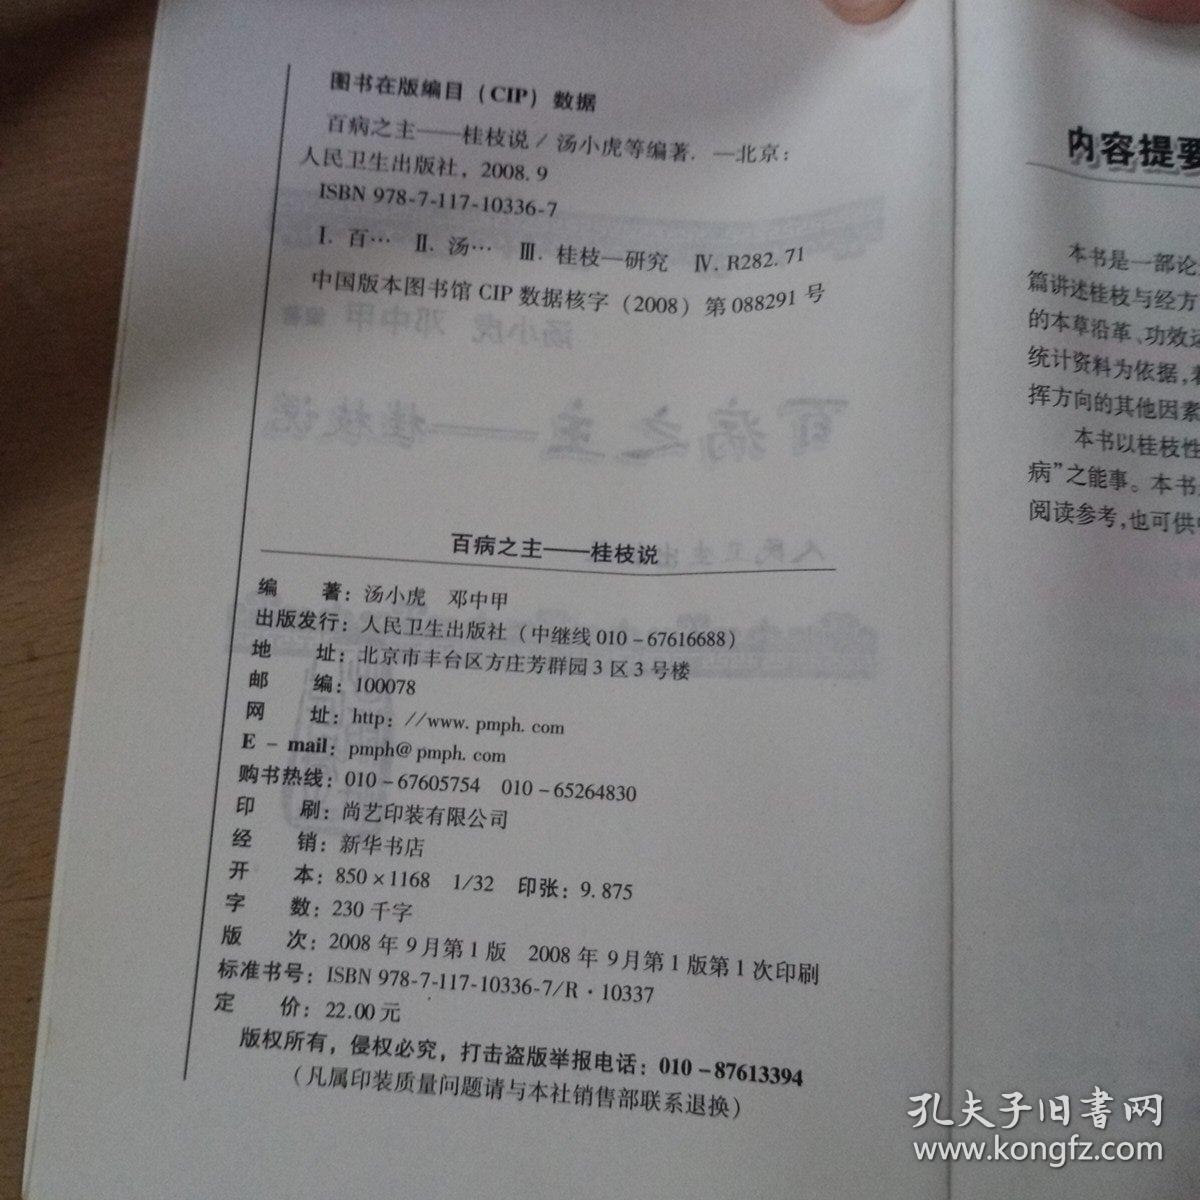 图书在版编目（CIP）数据
百病之主——桂枝说 / 汤小虎等编著. —北京：
人民卫生出版社，2008. 9
ISBN 978-7-117-10336-7
Ⅰ. 百… Ⅱ. 汤… Ⅲ. 桂枝—研究 Ⅳ. R282. 71
中国版本图书馆 CIP 数据核字（2008）第 088291 号
百病之主——桂枝说
编 著：汤小虎 邓中甲
出版发行：人民卫生出版社（中继线 010－67616688）
地 址：北京市丰台区方庄芳群园 3 区 3 号楼
邮 编：100078
网 址：http：//www. pmph. com
E － mail：pmph@pmph. com
购书热线：010－67605754 010－65264830
印 刷：尚艺印装有限公司
经 销：新华书店
开 本：850×1168 1/32 印张：9. 875
字 数：230 千字
版 次：2008 年 9 月第 1 版 2008 年 9 月第 1 版第 1 次印刷
标准书号：ISBN 978-7-117-10336-7/R · 10337
定 价：22.00 元
版权所有，侵权必究，打击盗版举报电话：010－87613394
（凡属印装质量问题请与本社销售部联系退换）
内容提要
本书是一部论
篇讲述桂枝与经方
的本草沿革、功效
统计资料为依据，
挥方向的其他因素
本书以桂枝性
病”之能事。本书
阅读参考，也可供
孔夫子旧书网
www.kongfz.com